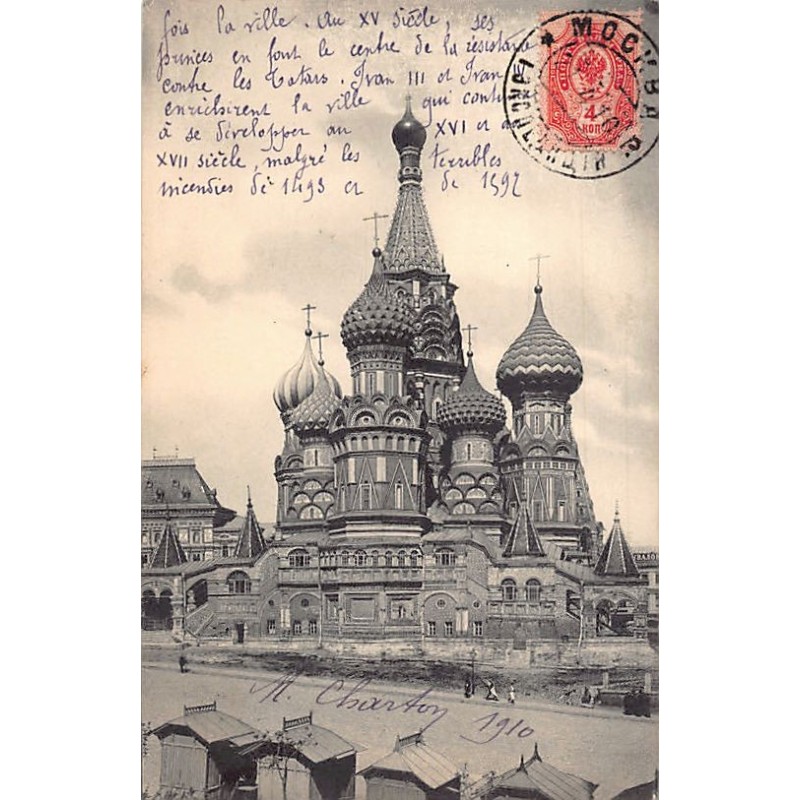 fois la ville. Au XV siècle, ses
princes en font le centre de la résistance
contre les Tatars. Ivan III et Ivan
enrichirent la ville qui conti
à se développer au XVI et a
XVII siècle, malgré les terribles
incendies de 1493 et de 1592
МОСКВА
4
КОП
M. Charton 1910